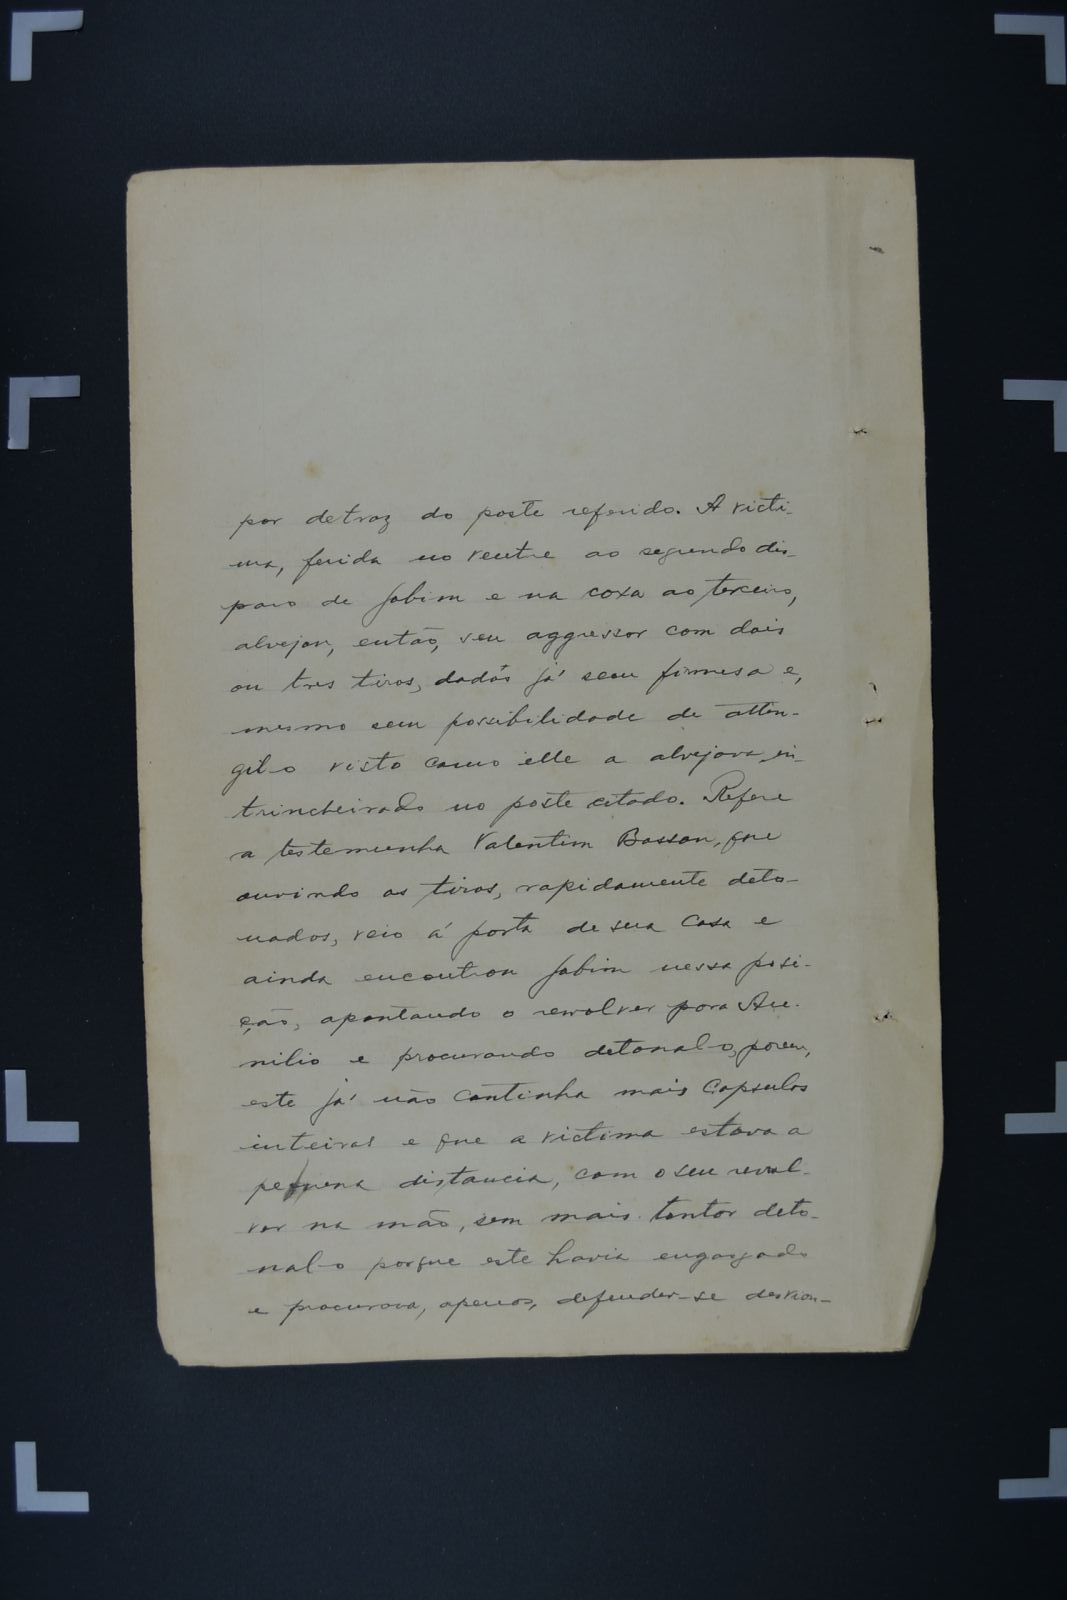 por detraz do poste referido. A victi-
ma, ferida no ventre ao segundo dis-
paro de Jobim e na coxa ao terceiro,
alvejou, então, seu aggressor com dois
ou tres tiros, dados já sem firmesa e,
mesmo sem possibilidade de attin-
gil-o visto como elle a alvejava, en-
trincheirado no poste citado. Refere
a testemunha Valentim Bassan, que
ouvindo os tiros, rapidamente deto-
nados, veio á porta de sua casa e
ainda encontrou Jobim nessa posi-
ção, apontando o revolver para An-
nilio e procurando detonal-o, porem,
este já não continha mais capsulas
inteiras e que a victima estava a
pequena distancia, com o seu revol-
ver na mão, sem mais tentar deto-
nal-o porque este havia engasgado
e procurava, apenas, defender-se desvian-